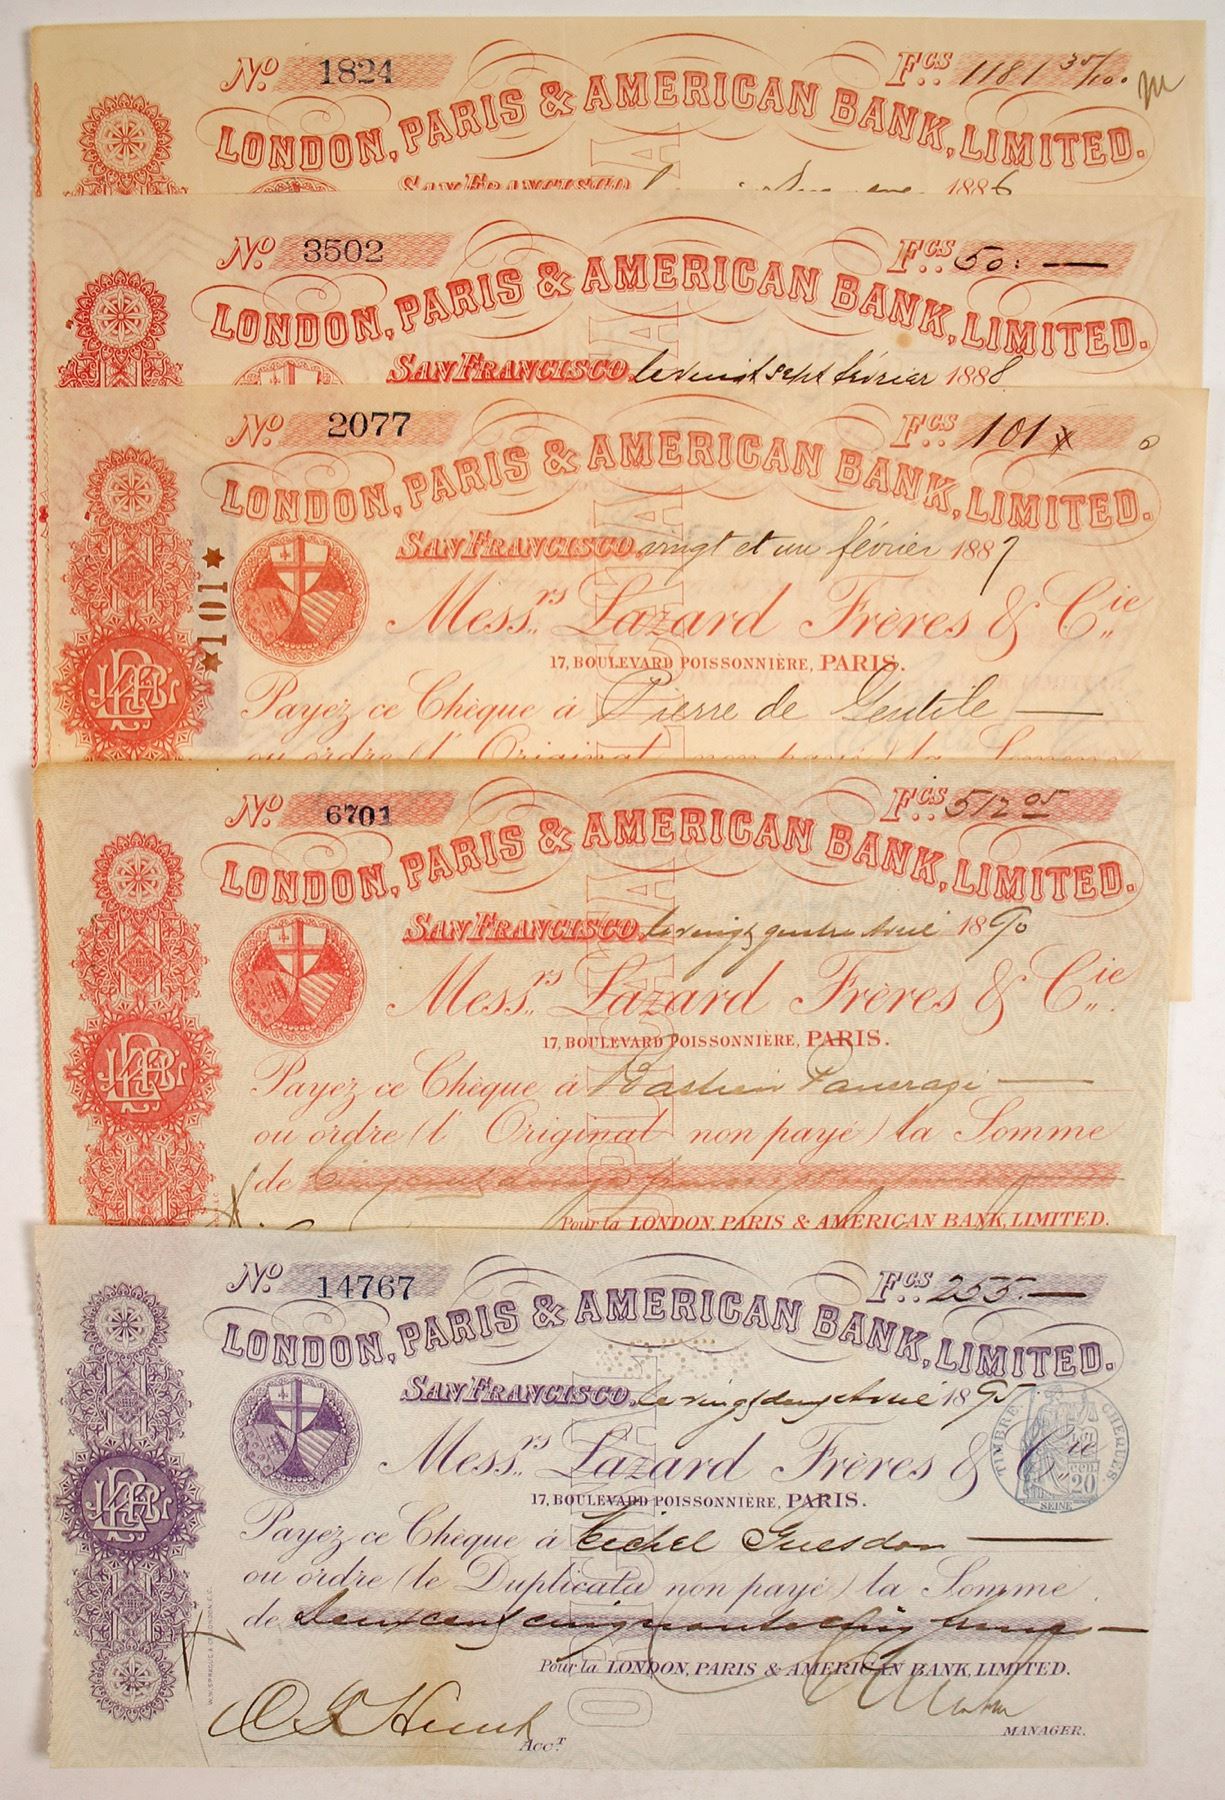 No. 1824 Fcs. 1181 35/100
LONDON, PARIS & AMERICAN BANK, LIMITED.
SAN FRANCISCO, 1886
No. 3502 Fcs. 50: —
LONDON, PARIS & AMERICAN BANK, LIMITED.
SAN FRANCISCO, le vingt sept février 1888
No. 2077 Fcs. 101
LONDON, PARIS & AMERICAN BANK, LIMITED.
SAN FRANCISCO, vingt et un février 1887
★101★
Messrs. Lazard Frères & Cie.
17, BOULEVARD POISSONNIÈRE, PARIS.
Payez ce Chèque à Pierre de Gentile —
ou ordre (l' Original non payé) la Somme
No. 6701 Fcs. 512 05
LONDON, PARIS & AMERICAN BANK, LIMITED.
SAN FRANCISCO, le vingt quatre 1890
Messrs. Lazard Frères & Cie.
17, BOULEVARD POISSONNIÈRE, PARIS.
Payez ce Chèque à Bastien Pancrazi —
ou ordre (l' Original non payé) la Somme
de Cinq cent douze francs
Pour la LONDON, PARIS & AMERICAN BANK, LIMITED.
No. 14767 Fcs. 255. —
LONDON, PARIS & AMERICAN BANK, LIMITED.
SAN FRANCISCO, le vingt deux 1895
Messrs. Lazard Frères & Cie
TIMBRE CHEQUES
20
SEINE
17, BOULEVARD POISSONNIÈRE, PARIS.
Payez ce Chèque à Michel Guesdon —
ou ordre (le Duplicata non payé) la Somme
de Deux cent cinquante cinq francs —
ORIGINAL
Pour la LONDON, PARIS & AMERICAN BANK, LIMITED.
Acct.
MANAGER.